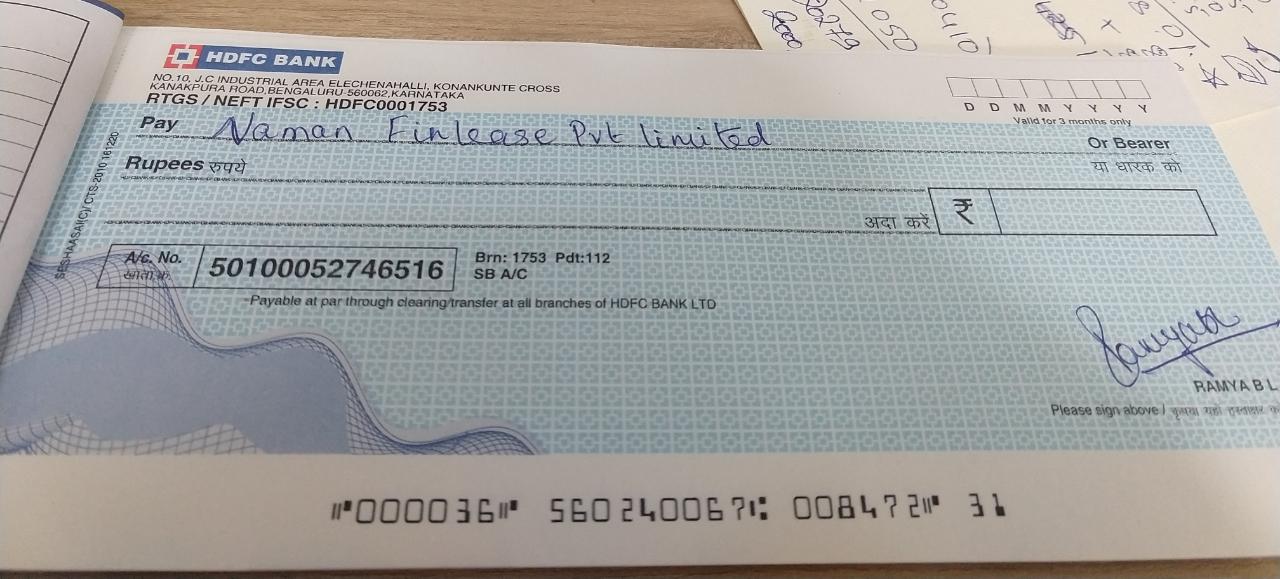 HDFC BANK
NO.10, J.C INDUSTRIAL AREA ELECHENAHALLI, KONANKUNTE CROSS
KANAKPURA ROAD,BENGALURU-560062,KARNATAKA
RTGS / NEFT IFSC : HDFC0001753
D D M M Y Y Y Y
Valid for 3 months only
Pay Naman Finlease Pvt limited Or Bearer
Rupees रुपये या धारक को
अदा करें ₹
A/c. No. 50100052746516
खाता क्र.
Brn: 1753 Pdt:112
SB A/C
Payable at par through clearing/transfer at all branches of HDFC BANK LTD
SESHAASAI(C)/ CTS-2010 161220
Ramya
RAMYA B L
Please sign above / कृपया यहाँ हस्ताक्षर
⑈000036⑈ 560240067⑆ 008472⑈ 31
20279
050
0410